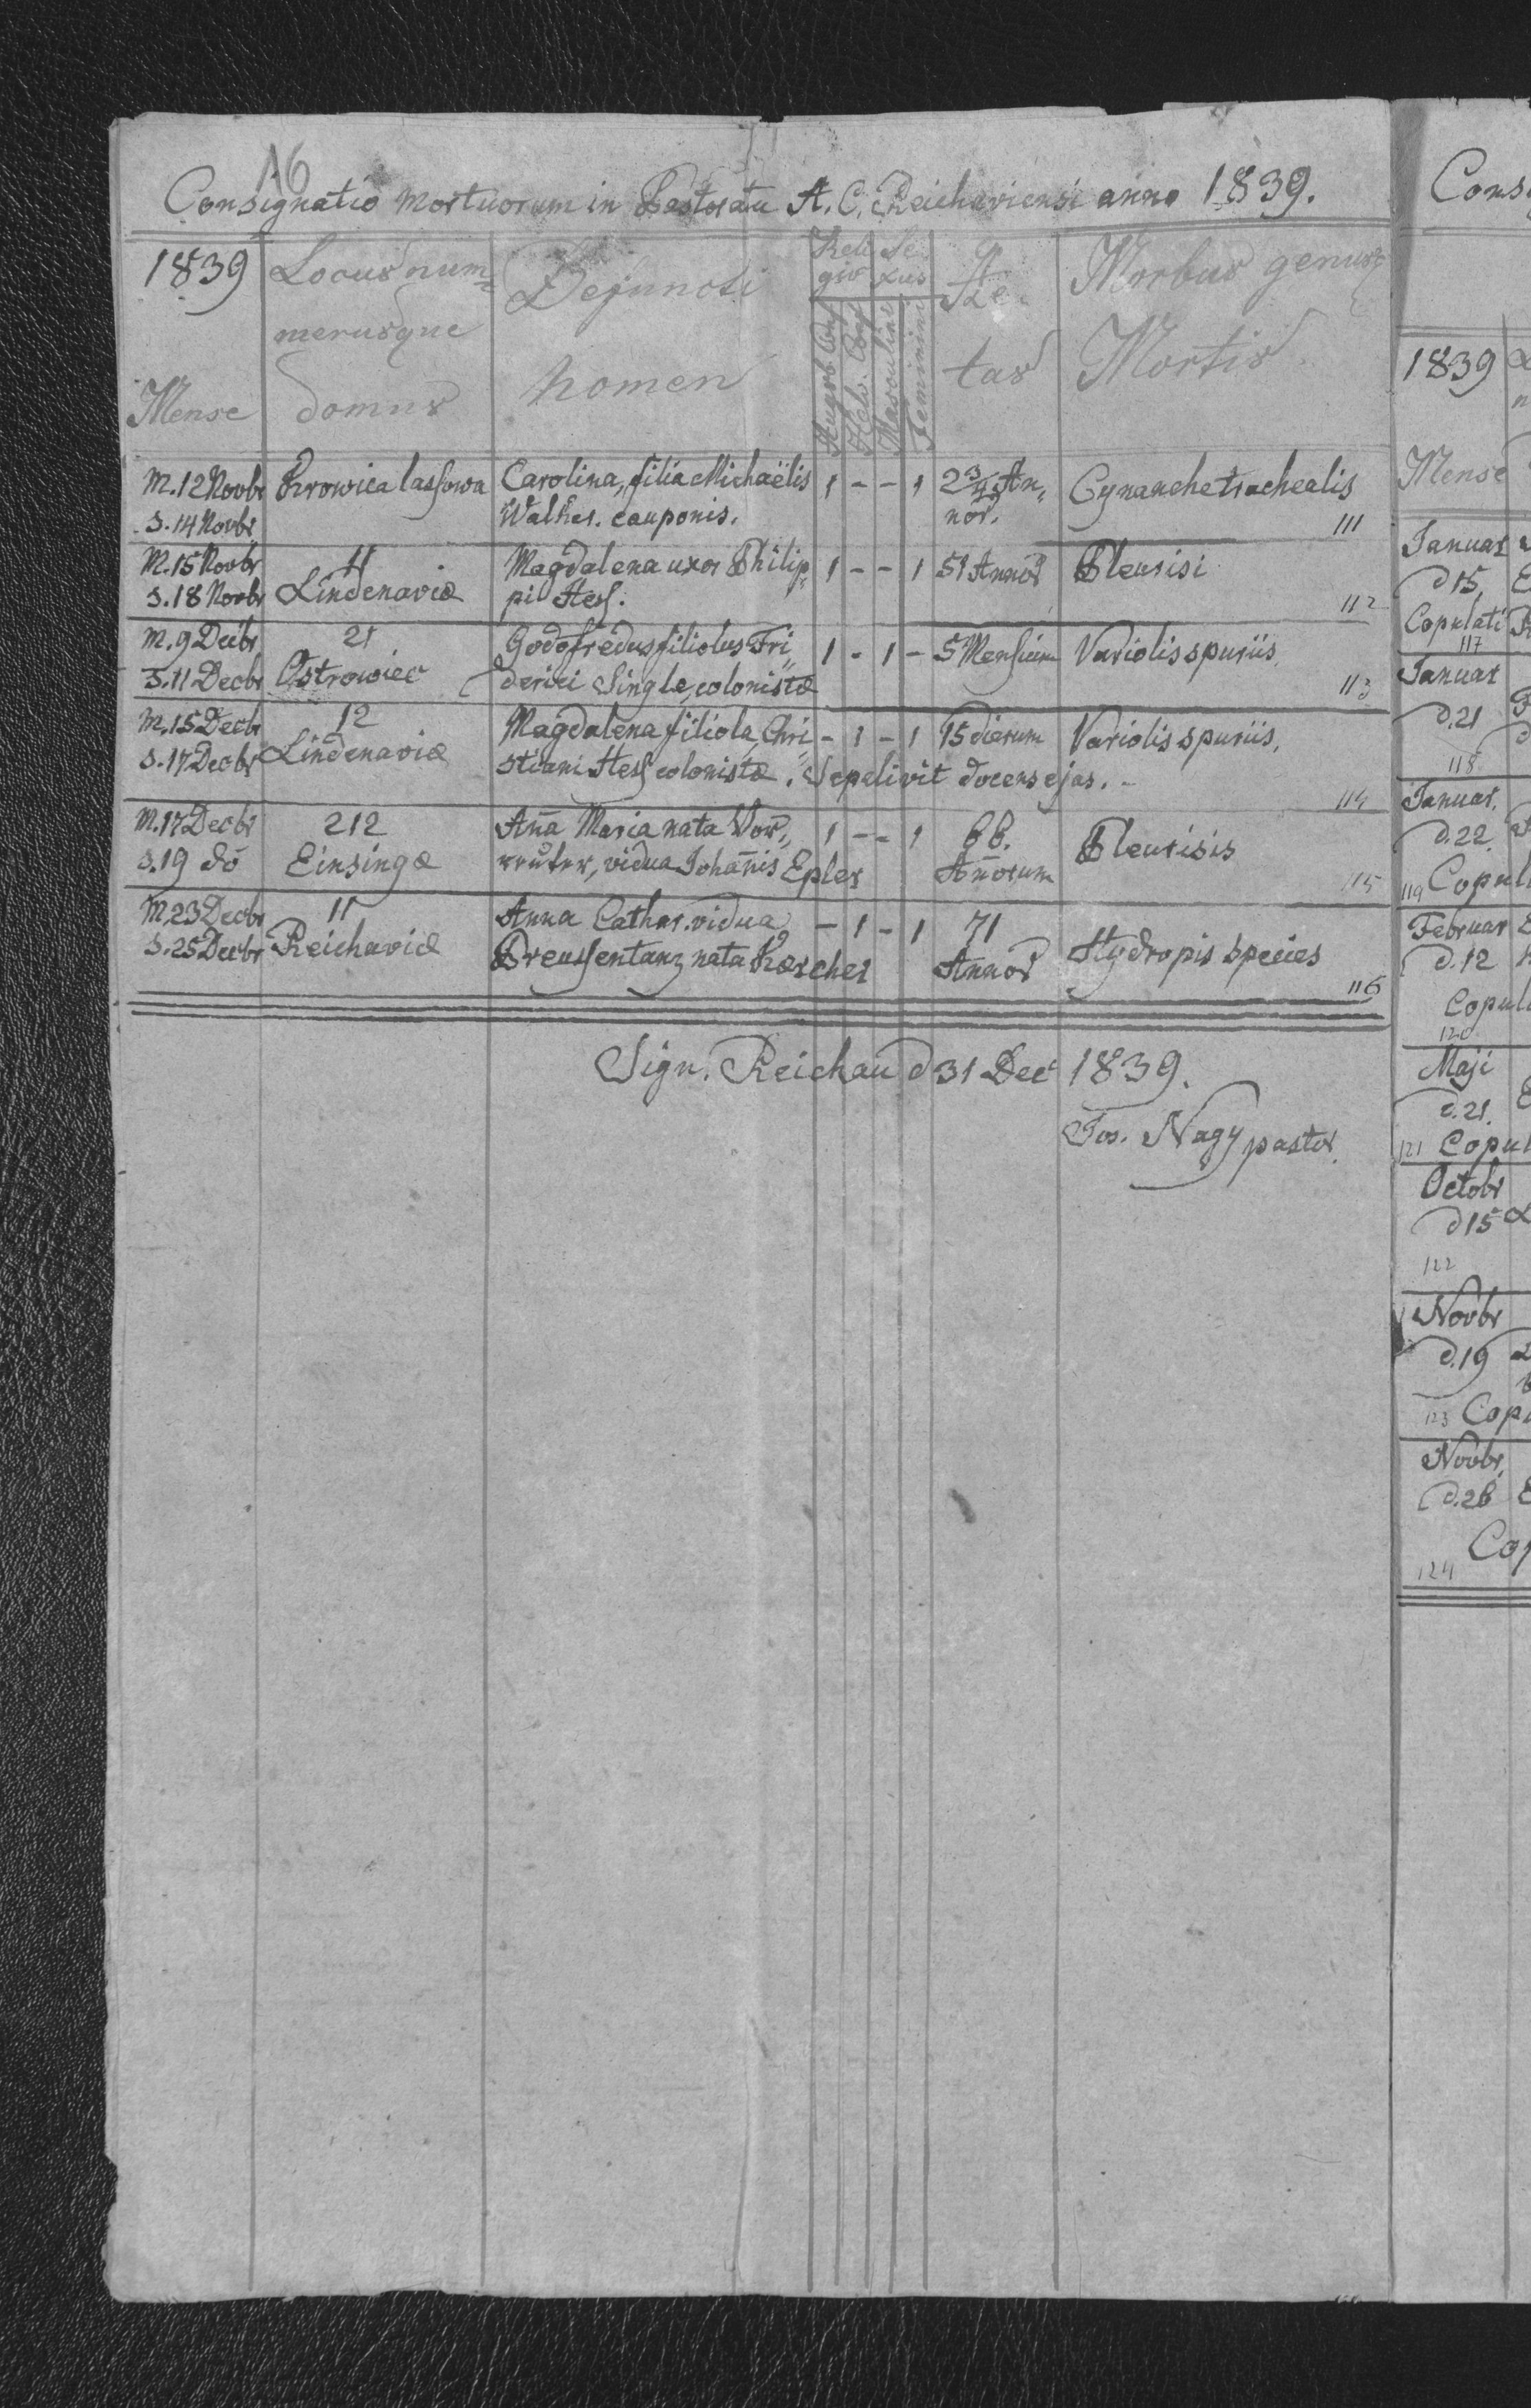 16
Consignatio Mortuorum in Pastoratu A. C. Reichaviensi anno 1839.
1839 Mense
Locus num=
merusque
domus
Defuncti
nomen
Reli
gio
Se
xus
Augsb. Conf
Helv. Conf
Masculini
Feminini
Ae
tas
Morbus genusq
Mortis
M. 12 Novbr
S. 14 Novbr
Krowica lassowa
Carolina, filia Michaëlis
Walther. cauponis.
1 - - 1
2 3/4 An,
nor.
Cynanche trachealis
111
M. 15 Novbr
S. 18 Novbr
11
Lindenaviæ
Magdalena uxor Philip,
pi Hess.
1 - - 1
51 Annor
Pleurisi
112
M. 9 Decbr
S. 11 Decbr
21
Ostrowiec
Godofredus filiolus Fri,,
derici Single, colonistæ
1 - 1 -
5 Mensium
Variolis spuriis.
113
M. 15 Decbr
S. 17 Decbr
12
Lindenaviæ
Magdalena filiola, Chri,,
stiani Hess colonistæ. Sepelivit docens ejas. -
- 1 - 1
15 dierum
Variolis spuriis.
114
M. 17 Decbr
S. 19 do
212
Einsingæ
Aña Maria nata Vor,,
reuter, vidua Johañis Epler
1 - - 1
66.
Añorum
Pleurisis
115
M. 23 Decbr
S. 25 Decbr
11
Reichaviæ
Anna Cathar. vidua
Preussentanz nata Kærcher
- 1 - 1
71
Annor
Hydropis species
116
Sign. Reichau d 31 Dec 1839.
Jos. Nagy pastor.
Cons
1839
Mense
Januar
d 15.
Copulati
117
Januar
d. 21
118
Januar.
d. 22.
119 Copul
Februar
d. 12
Copul
120
Maji
d. 21.
121 Copul
Octobr
d 15
122
Novbr
d. 19
123 Cop
Novbr.
d. 26
Cop
124